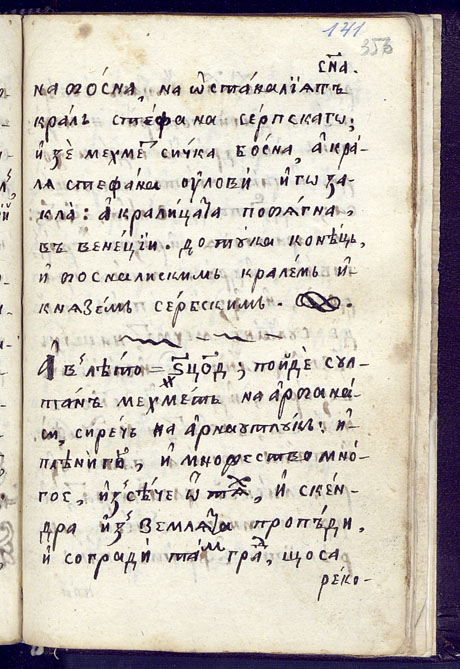 141
353
сн҃а.
на босна, на ѡстаналїятъ
краль стефана серпскагѡ,
и зе мехмет сичка босна, а кра-
ля стефана оулови и го за-
кла: а кралицата побягна,
въ венеции. дотука конецъ,
и босналискимъ кралемъ и
княземъ сербскимъ.
в лѣто = ҂ѕцо҃д, пойде сул-
танъ мехметъ на арбана-
си, сиречь на арнаутлукъ: и
плѣниго, и множество мно-
гое, изсѣче ѿ тѧх, и скен-
дра из землята пропѫди,
и согради там град, щоса
реко-